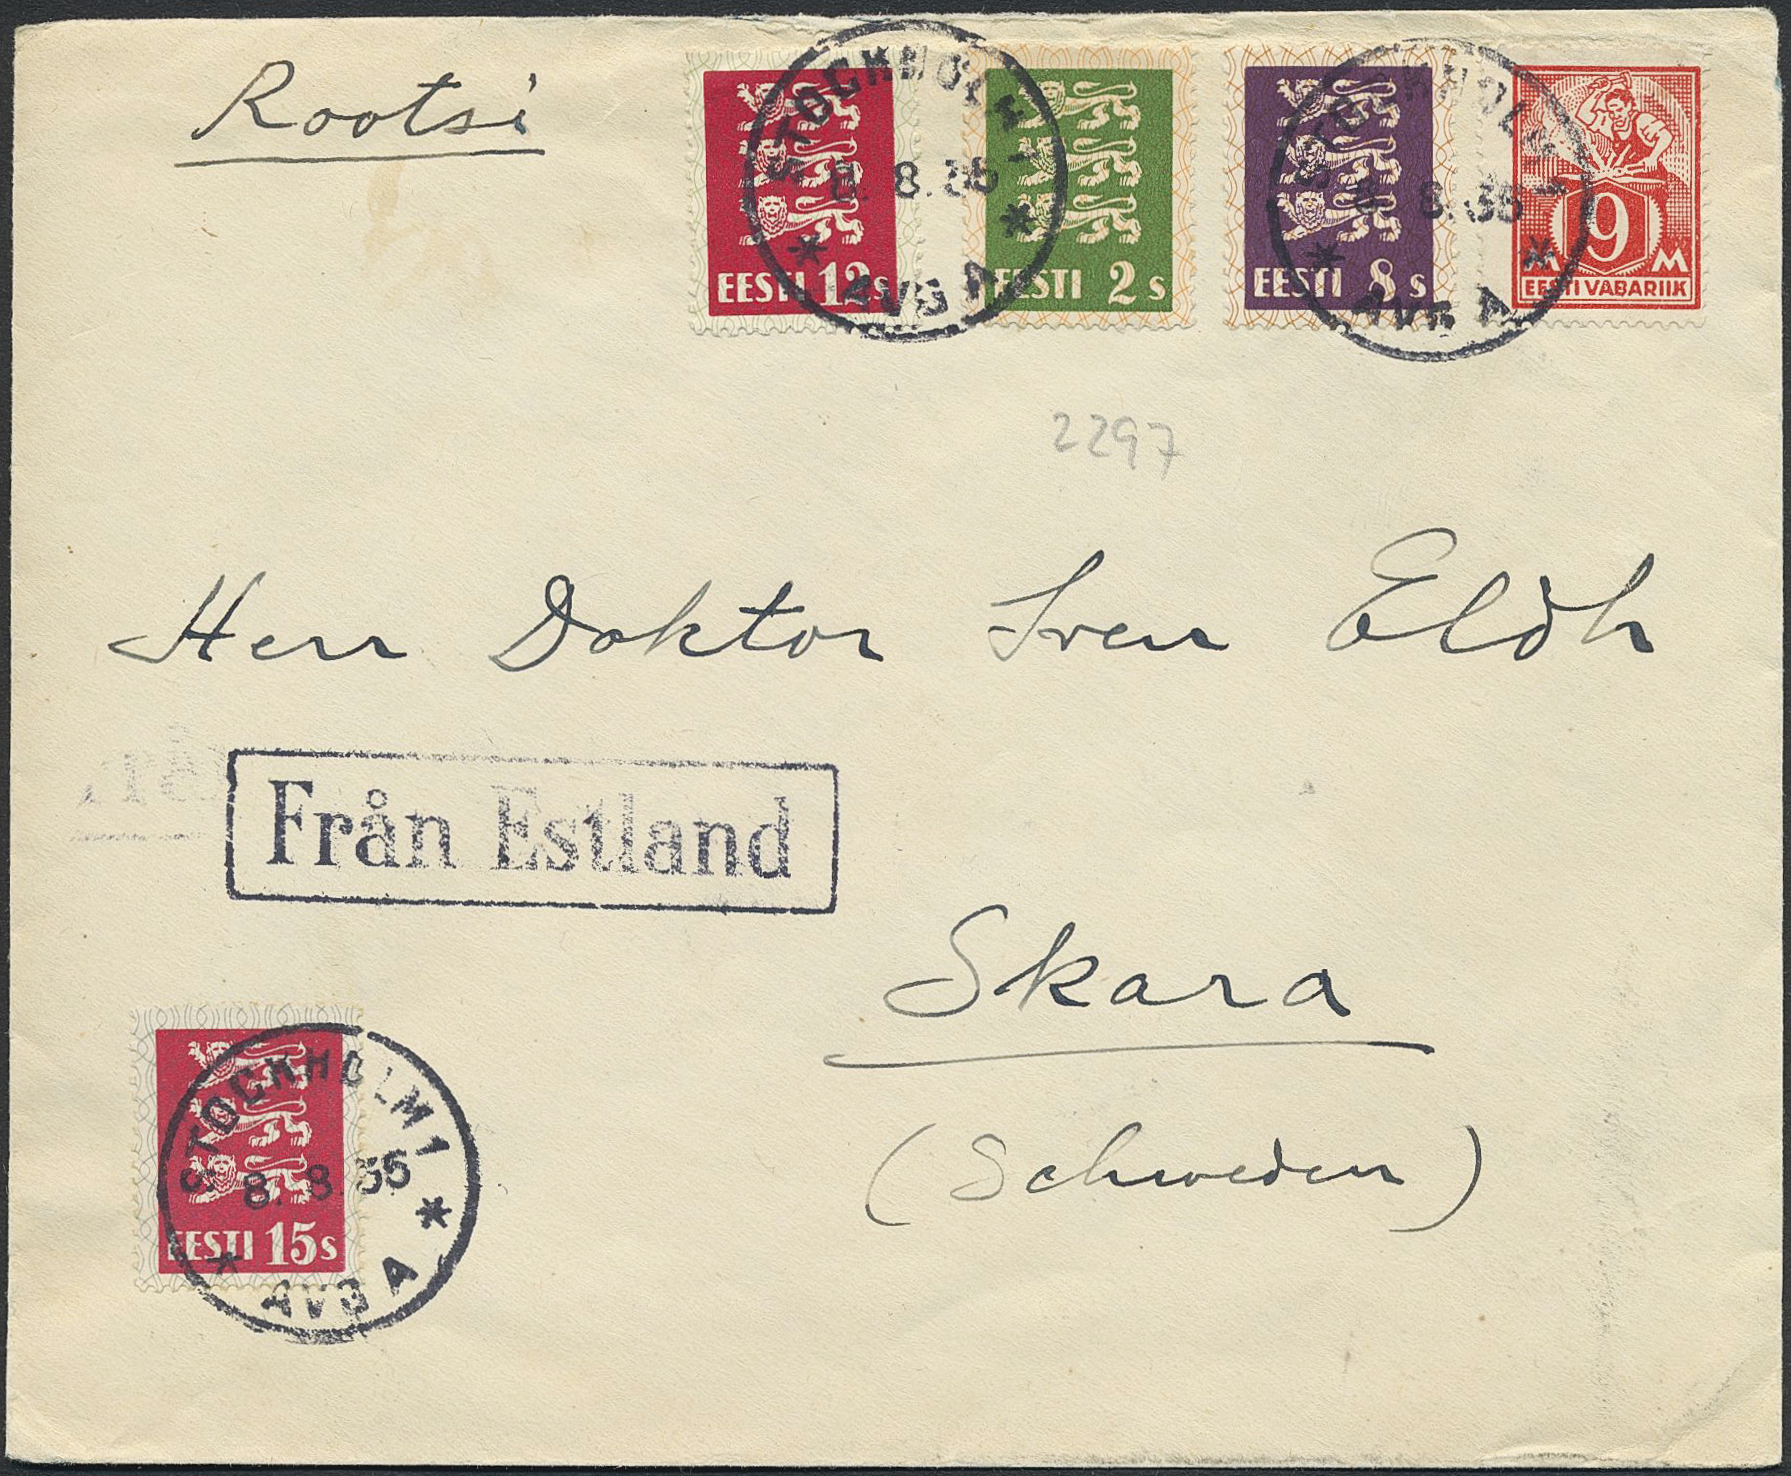 Rootsi
EESTI 12s
EESTI 2 s
EESTI 8 s
9
M M
EESTI VABARIIK
STOCKHOLM 1
8. 8. 35
AVG A
STOCKHOLM 1
8. 8. 35
AVG A
2297
Herr Doktor Sven Eldh
Från Estland
Skara
(Schweden)
EESTI 15s
STOCKHOLM 1
8. 8. 35
AVG A